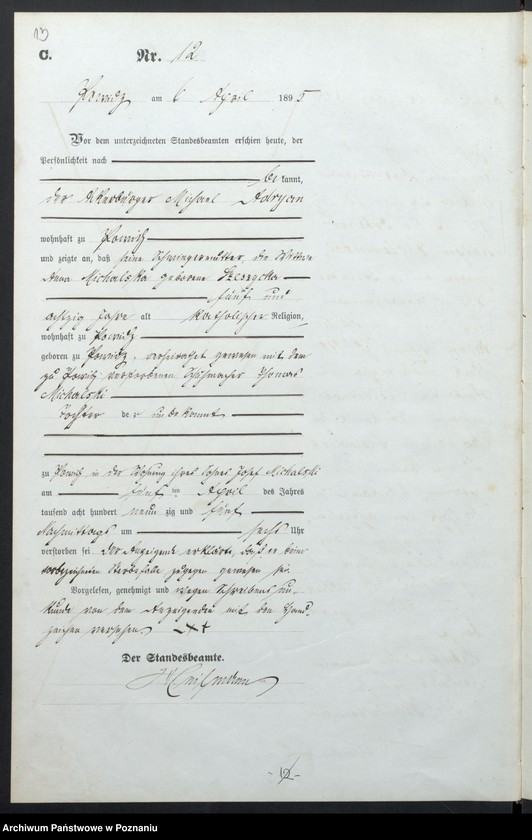 13
C. Nr. 12
Powidz am 6 April 1895
Vor dem unterzeichneten Standesbeamten erschien heute, der
Persönlichkeit nach
bekannt,
der Ackerbürger Michael Adryan
wohnhaft zu Powidz
und zeigte an, daß seine Schwiegermutter, die Wittwe
Anna Michalska geborene
fünf und
achtzig Jahre alt katholischer Religion,
wohnhaft zu Powidz
geboren zu Powidz, verheirathet gewesen mit dem
zu Powidz verstorbenen Schuhmacher Thomas
Michalski
Tochter der unbekannt
zu Powidz in der Wohnung ihres Sohnes Josef Michalski
am fünf ten April des Jahres
tausend acht hundert neun zig und fünf
Nachmittags um sechs Uhr
verstorben sei. Der Anzeigende erklärte, daß er beim
vorbezeichneten Sterbefalle zugegen gewesen sei.
Vorgelesen, genehmigt und wegen Schreibens un-
kunde von dem Anzeigenden mit den Hand-
zeichen versehen +++
Der Standesbeamte.
- 12 -
Archiwum Państwowe w Poznaniu